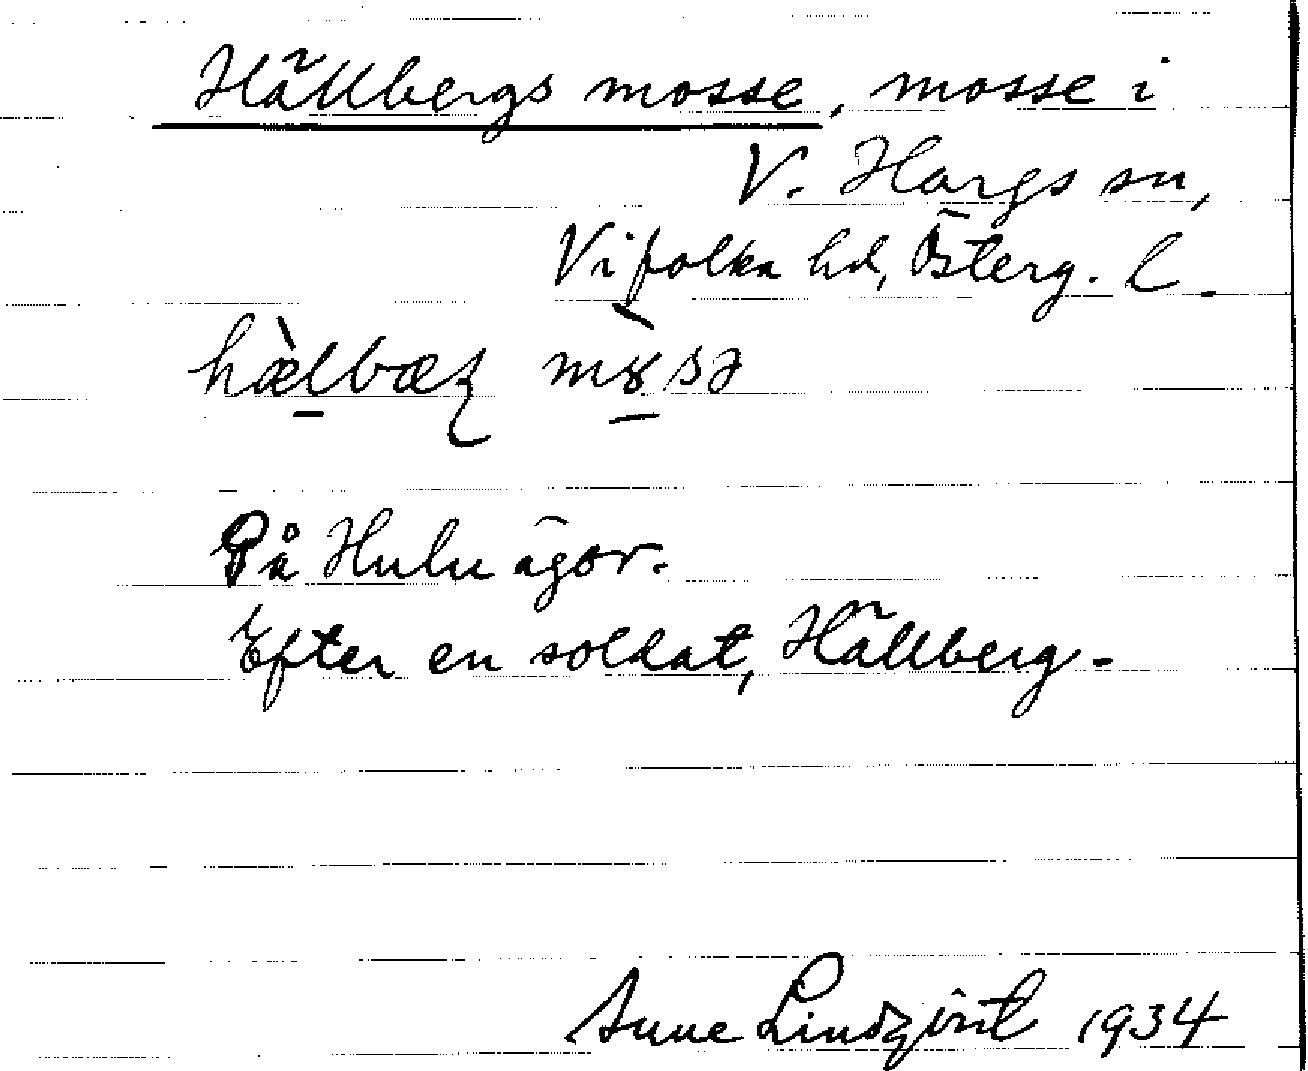 Hällbergs mosse, mosse i
V. Hargs sn,
Vifolka hd, Österg. l.
På Hulu ägor.
Efter en soldat, Hällberg.
Sune Lindqvist 1934